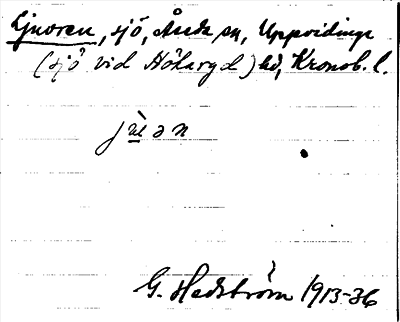 Ljuoren, sjö, Åseda sn, Uppvidinge
(sjö vid Hökaryd) hd, Kronob. l.
G. Hedström 1913-36